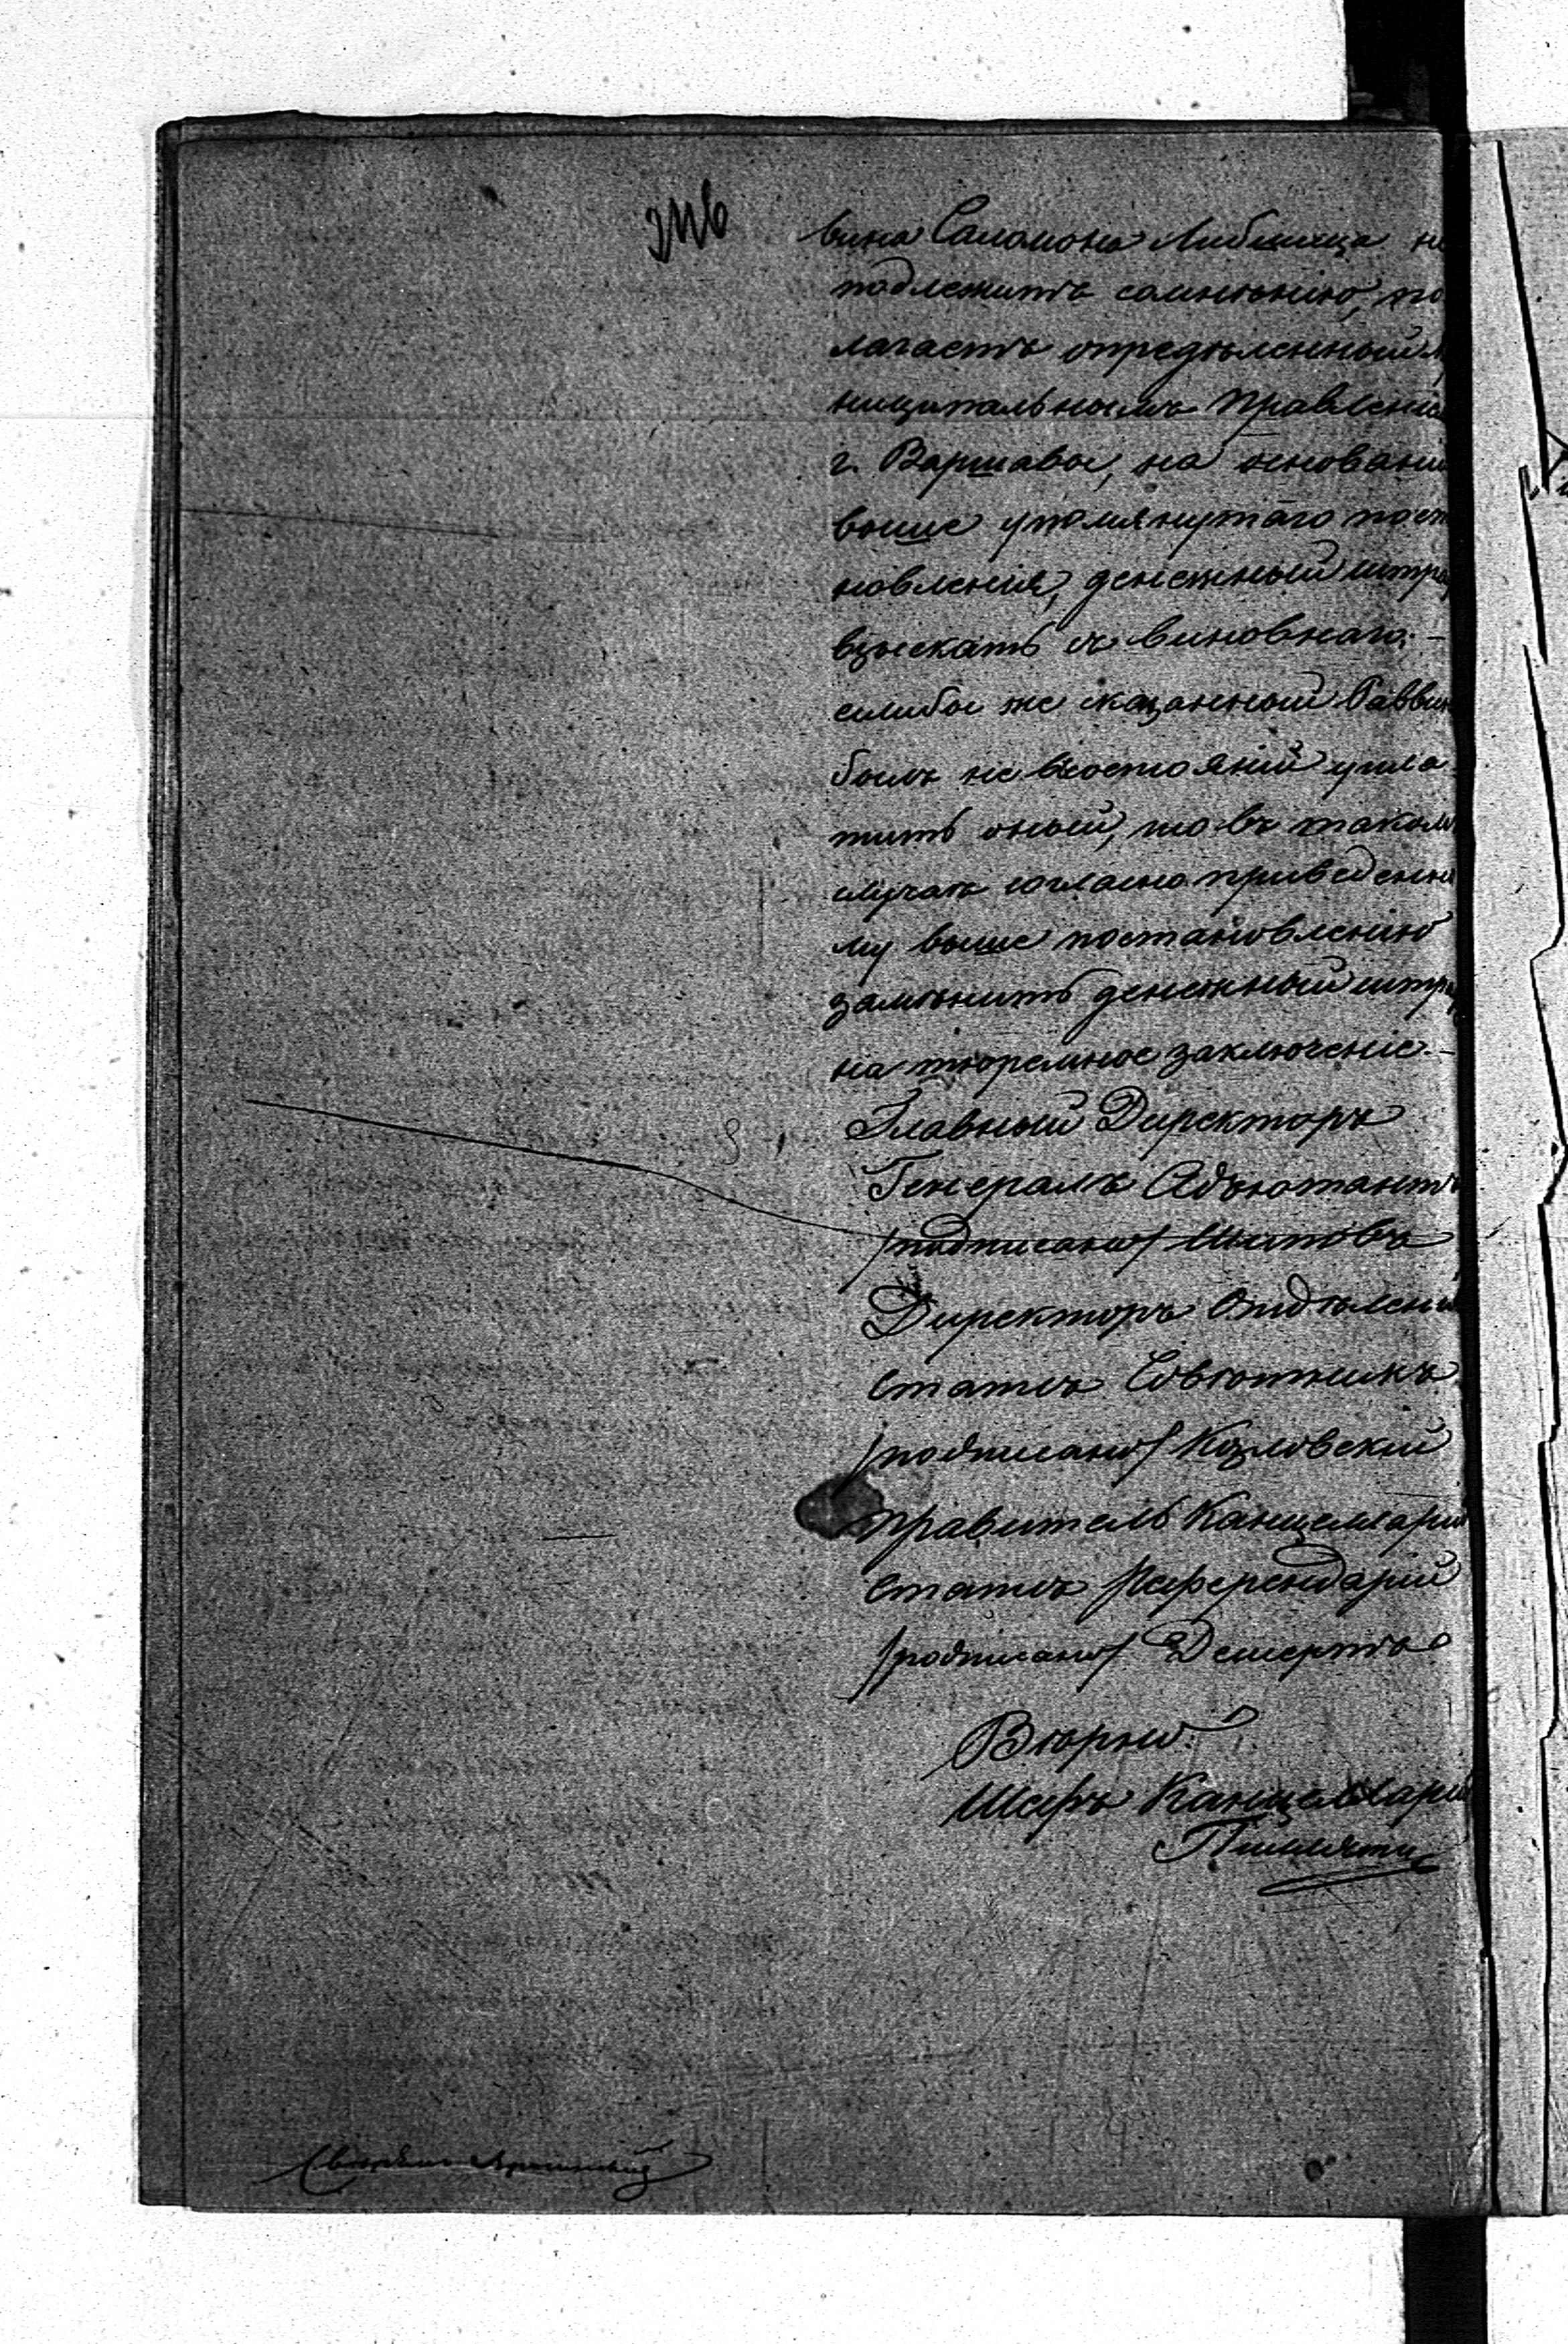 вина Саломона Либшица не
подлежитъ сомнѣнію, по
лагаетъ опредѣленный М
ниципальнымъ Правлені
г. Варшавы, на основані
выше упомянутаго пост
новленія, денежный штра
взыскать съ виновнаго;—
еслибы же сказанный Раввин
былъ не въ состояніи упла
тить оный, то въ таком
случаѣ согласно приведенно
му выше постановленію
замѣнить денежный штра
на тюремное заключеніе.—
Главный Директоръ
Генералъ Адъютантъ
/подписано/ Шиповъ
Директоръ Отдѣлені
Статсъ Совѣтникъ
/подписано/ Козловскій
Правитель Канцеляріи
Статсъ Референдарій
/подписано/
Вѣрно:
Шефъ Канцелляріи